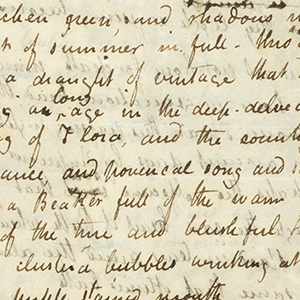 green and
of summer in full-
a draught of vintage that
an long age in the deep-delve
of Flora, and the
ance, and provencal song and
a Beaker full of the warm
of the true and blushful
cluster'd bubbles winking at
stained mouth